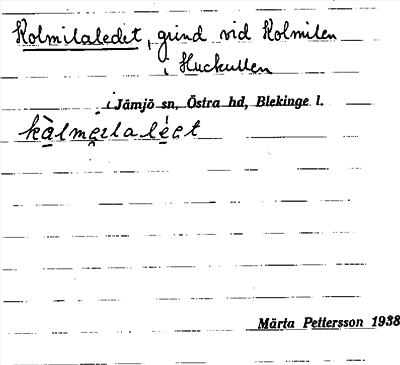 Kolmilaledet, grind vid Kolmilen
i Huckullen
i Jämjö sn, Östra hd, Blekinge l.
Märta Pettersson 1938